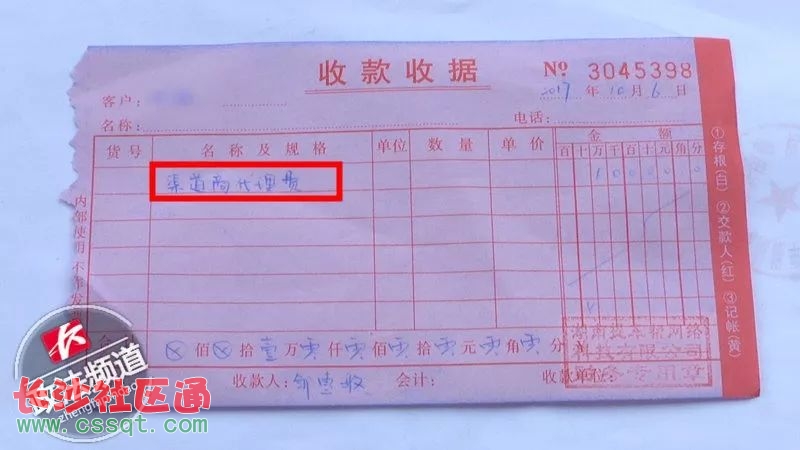 收款收据 № 3045398
客户: 2017年10月6日
名称: 电话:
货号 名称及规格 单位 数量 单价 金额
百十万千百十元角分
渠道商代理费 1000000
⊗佰⊗拾壹万零仟零佰零拾零元零角零分
收款人: 会计: 收款单位:
内部使用 不
①存根(白) ②交款人(红) ③记帐(黄)
科技有限公司
专用章
频道
长沙社区通
www.cssqt.com